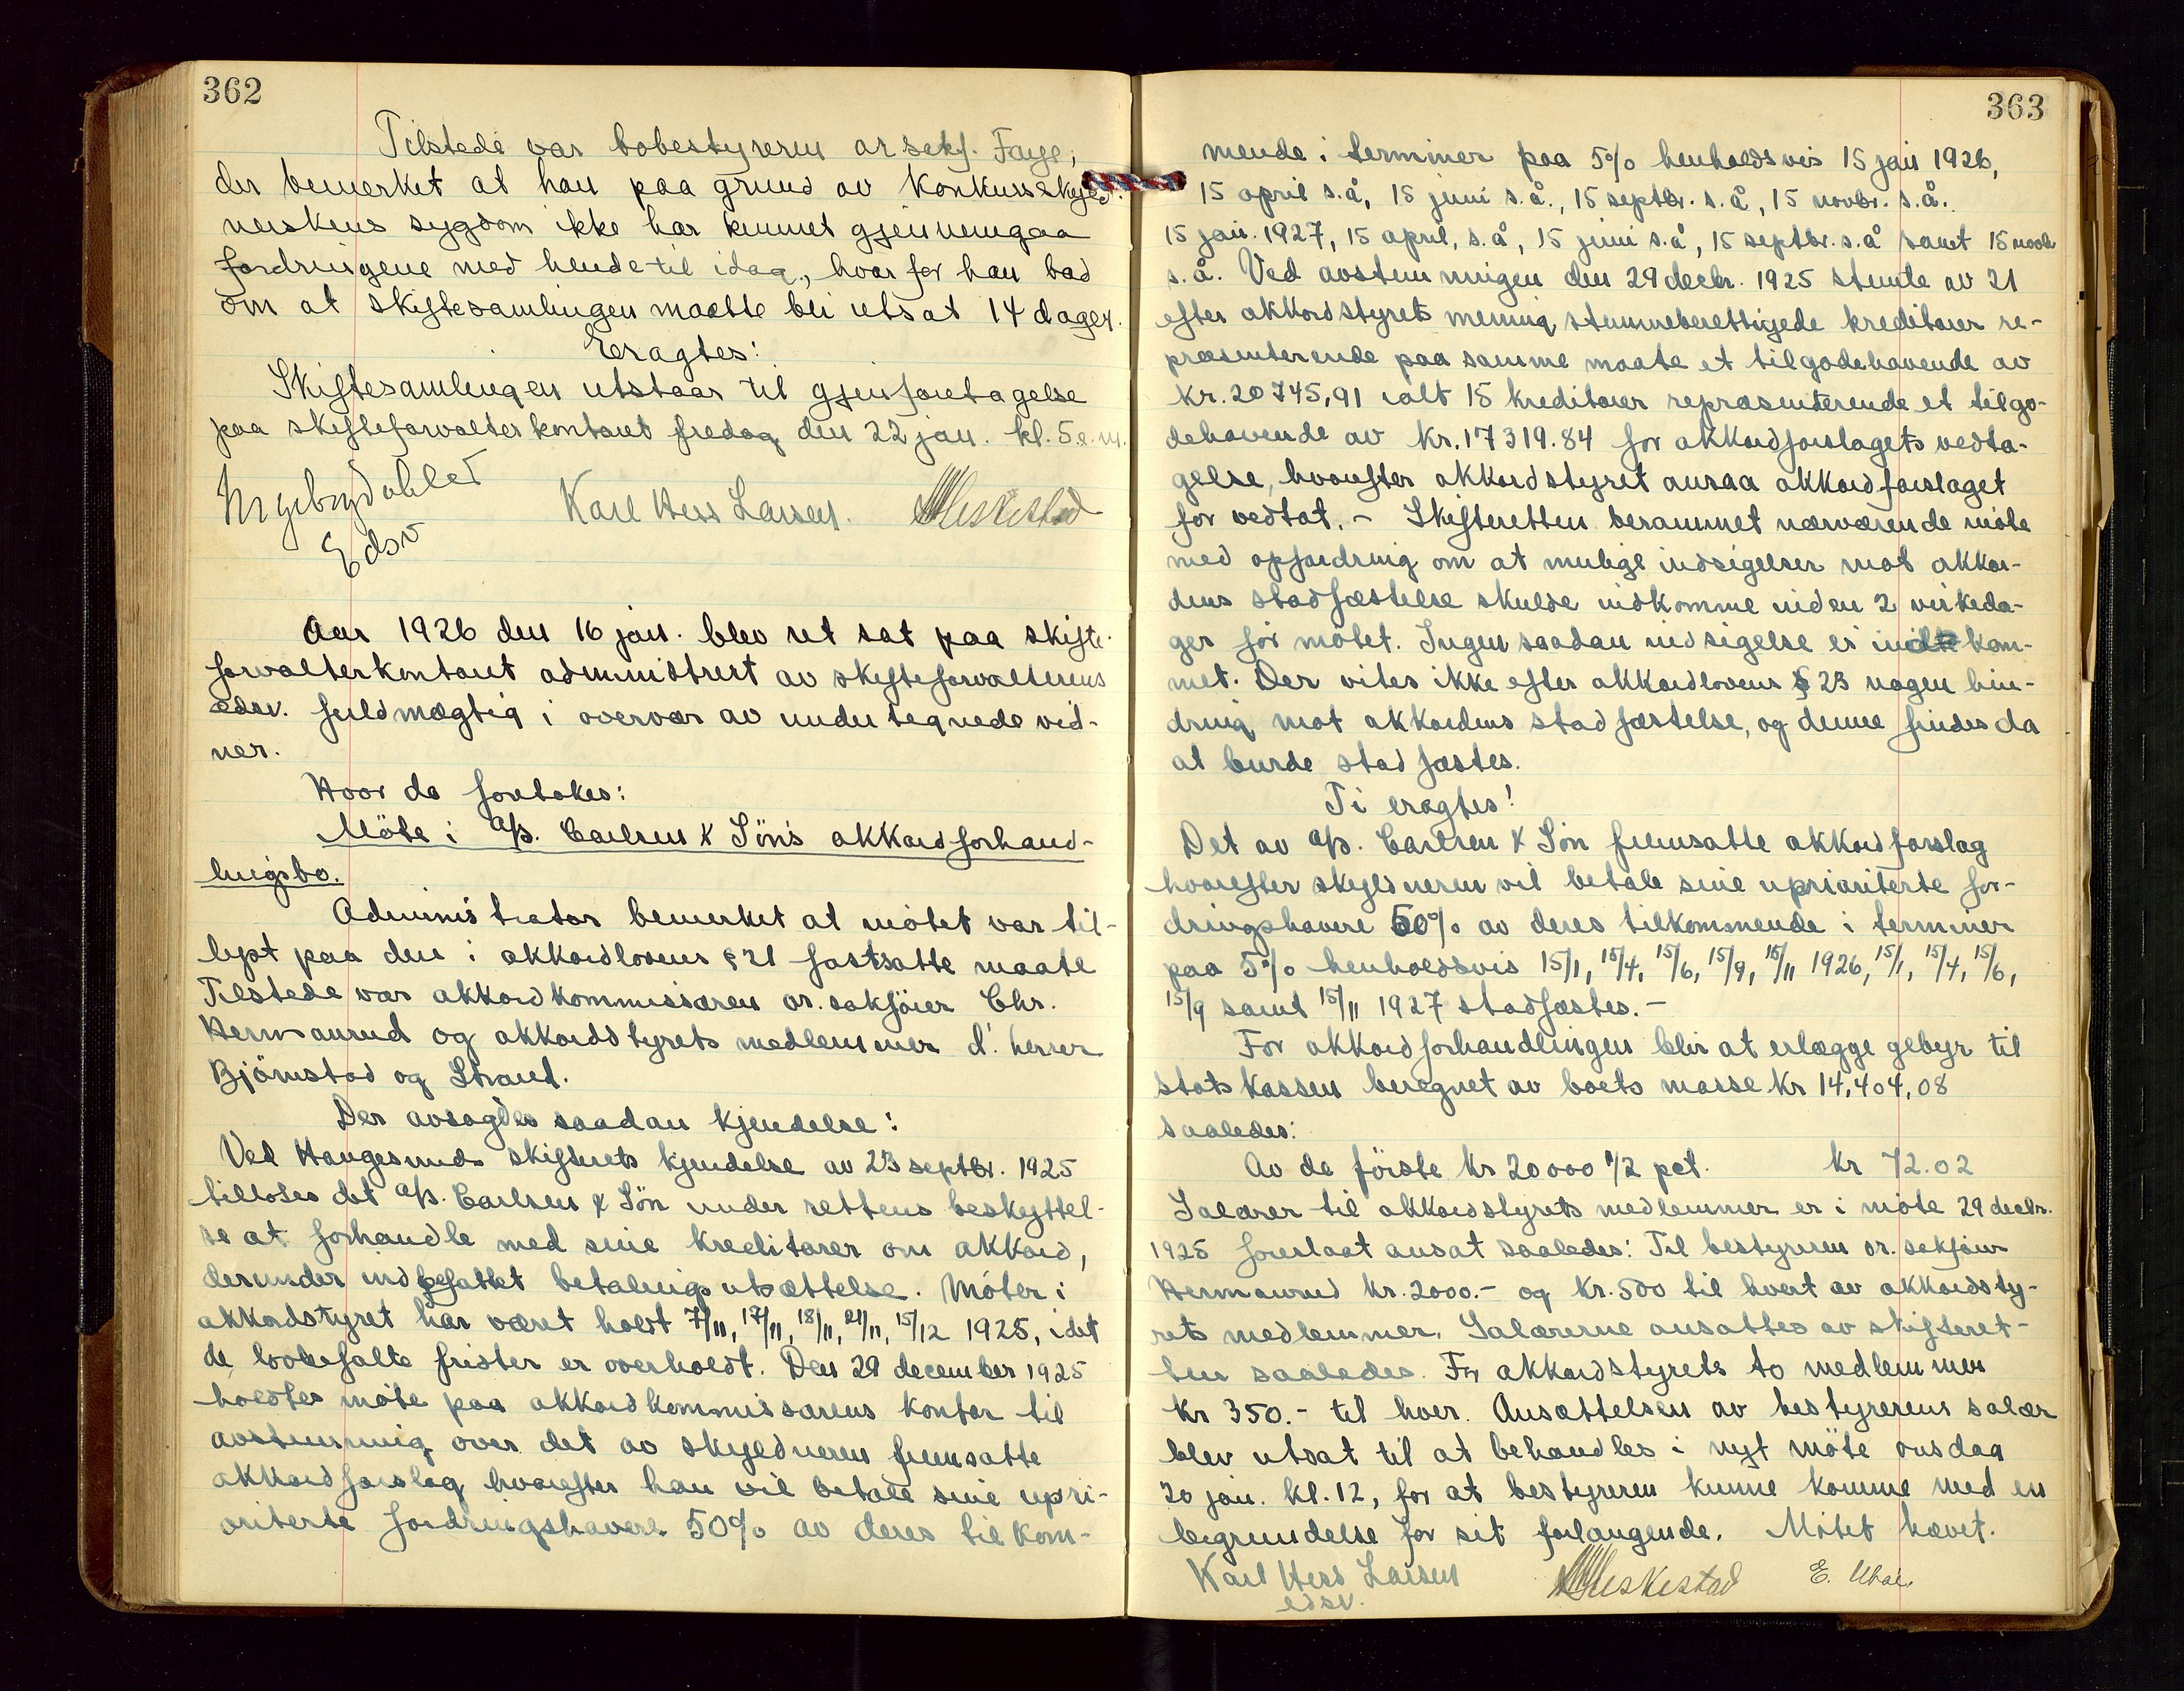 362
Tilstede var bobestyreren or sakf. Faye,
der bemerket at han paa grund av Konkursskyld-
nerskens sygdom ikke har kunnet gjennemgaa
fordringene med hende til idag, hvorfor han bad
om at skiftesamlingen maatte bli utsat 14 dager.
Eragtes:
Skiftesamlingen utstaar til gjenforetagelse
paa skifteforvalterkontoret fredag den 22 jan. kl. 5 e.m.
Edsv
Karl Hess Larsen. Meskestad
Aar 1926 den 16 jan. blev ret sat paa skifte-
forvalterkontoret administrert av skifteforvalterens
edsv. fuldmægtig i overvær av undertegnede vid-
ner.
Hvor da foretokes:
Möte i A/s. Carlsen & Söns akkordforhand-
lingsbo.
Administrator bemerket at mötet var til-
lyst paa den i akkordlovens § 21 fastsatte maate
Tilstede var akkordkommissæren or. sakförer Chr.
Hermanrud og akkordstyrets medlemmer d'. herrer
Björnstad og Strand.
Der avsagdes saadan kjendelse:
Ved Haugesunds skifterets kjendelse av 23 septbr. 1925
tillotes det A/s. Carlsen & Sön under rettens beskyttel-
se at forhandle med sine kreditorer om akkord,
derunder indbefattet betalingsutsættelse. Möter i
akkordstyret har været holdt 7/11, 17/11, 18/11, 21/11, 15/12 1925, idet
de lovbefalte frister er overholdt. Den 29 december 1925
holdtes möte paa akkordkommissærens kontor til
avstemning over det av skyldneren fremsatte
akkordforslag hvorefter han vil betale sine upri-
oriterte fordringshavere 50% av deres tilkom-
363
mende i terminer paa 5% henholdsvis 15 jan 1926,
15 april s.å, 15 juni s.å., 15 septbr. s.å, 15 novbr. s.å.
15 jan. 1927, 15 april, s.å, 15 juni s.å, 15 septbr. s.å samt 15 novb
s.å. Ved avstemningen den 29 decbr. 1925 stemte av 21
efter akkordstyrets mening stemmeberettigede kreditorer re-
præsenterende paa samme maate et tilgodehavende av
Kr. 20745,91 ialt 15 kreditorer repræsenterende et tilgo-
dehavende av Kr. 17319.84 for akkordforslagets vedta-
gelse, hvorefter akkordstyret ansaa akkordforslaget
for vedtat. - Skifteretten berammet nærværende möte
med opfordring om at mulige indsigelser mot akkor-
dens stadfæstelse skulde indkomme inden 2 virkeda-
ger för mötet. Ingen saadan indsigelse er indkom-
met. Der vites ikke efter akkordlovens § 23 nogen hin-
dring mot akkordens stadfæstelse, og denne findes da
at burde stadfæstes.
Ti eragtes!
Det av A/s. Carlsen & Sön fremsatte akkordforslag
hvorefter skyldneren vil betale sine uprioriterte for-
dringshavere 50% av deres tilkommende i terminer
paa 5% henholdsvis 15/1, 15/4, 15/6, 15/9, 15/11 1926, 15/1, 15/4, 15/6,
15/9 samt 15/11 1927 stadfæstes. -
For akkordforhandlingen blir at erlægge gebyr til
statskassen beregnet av boets masse Kr 14.404,08
saaledes:
Av de förste Kr 20000 1/2 pct. kr 72.02
Salærer til akkordstyrets medlemmer er i möte 29 decbr.
1925 foreslaat ansat saaledes: Til bestyreren or. sakförer
Hermanrud Kr. 2000.- og Kr. 500 til hvert av akkordsty-
rets medlemmer. Salærerne ansattes av skifteret-
ten saaledes. For akkordstyrets to medlemmer
Kr 350.- til hver. Ansættelsen av bestyrerens salær
blev utsat til at behandles i nyt möte onsdag
20 jan. kl. 12, for at bestyreren kunne komme med en
begrundelse for sit forlangende. Mötet hævet.
Karl Hess Larsen Meskestad E.
edsv.